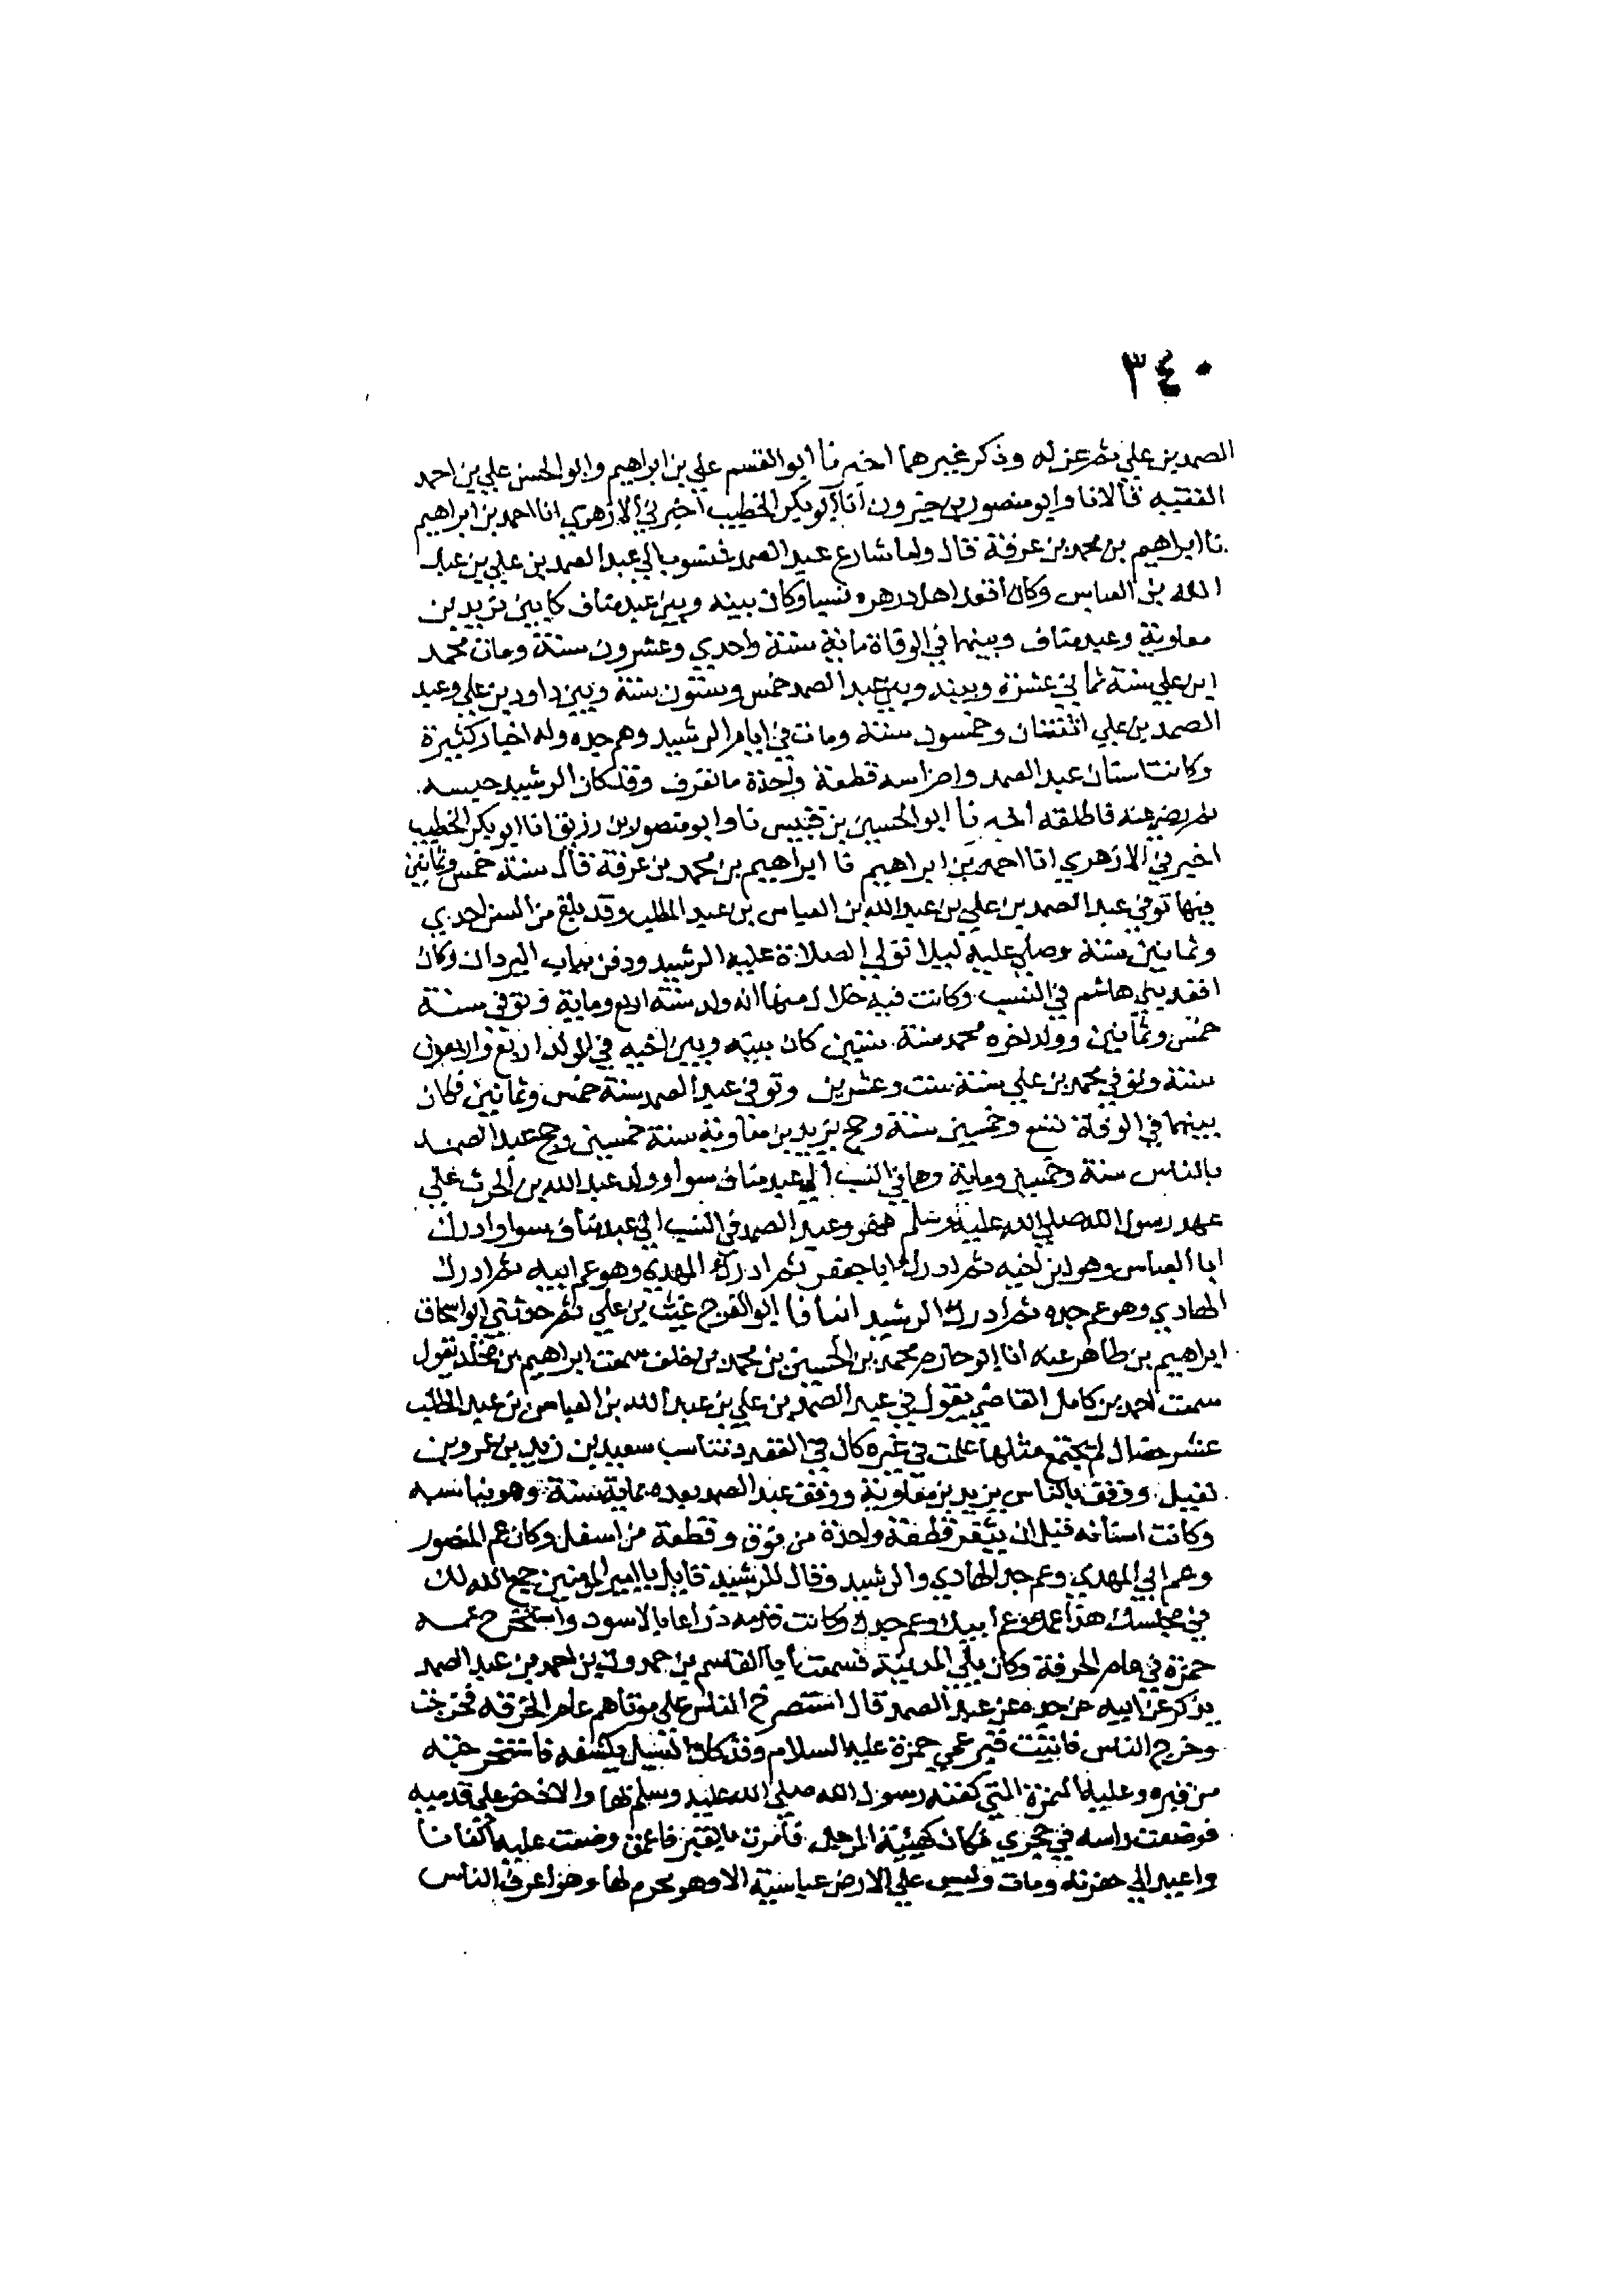 ٣٤٠
الصمد بن علي ثم عزله وذكر غيرهما اخبرنا ابو القسم علي بن ابراهيم وابو الحسن علي بن احمد
الفقيه قالا نا وابو منصور بن خيرون انا ابو بكر الخطيب اخبرني الازهري انا احمد بن ابراهيم
نا ابراهيم بن محمد بن عرفة قال واما شارع عبد الصمد فمنسوب الي عبد الصمد بن علي بن عبد
الله بن العباس وكان اقعد اهل دهره نسبا وكان بينه وبين عبد مناف كما بين يزيد بن
معاوية وعبد مناف وبينهما في الوفاة مائة سنة واحدي وعشرون سنة ومات محمد
ابن علي سنة ثماني عشرة وبينه وبين عبد الصمد خمس وستون سنة وبين داود بن علي وعبد
الصمد بن علي اثنتان وخمسون سنة ومات في ايام الرشيد وهو عم جده وله اخبار كثيرة
وكانت اسنان عبد الصمد واضراسه قطعة واحدة ما تفرق وقد كان الرشيد حبسه
ثم رضي عنه فاطلقه اخبرنا ابو الحسين بن قبيس نا وابو منصور بن رزيق انا ابو بكر الخطيب
اخبرني الازهري انا احمد بن ابراهيم نا ابراهيم بن محمد بن عرفة قال سنة خمس وثمانين
فيها توفي عبد الصمد بن علي بن عبد الله بن العباس بن عبد المطلب وقد بلغ من السن احدي
وثمانين سنة وصلي عليه ليلا تولي الصلاة عليه الرشيد ودفن بباب البردان وكان
اقعد بني هاشم في النسب وكانت فيه خلال منها انه ولد سنة اربع وماية وتوفي سنة
خمس وثمانين وولد اخوه محمد سنة ستين كان بينه وبين اخيه في المولد اربع واربعون
سنة وتوفي محمد بن علي سنة ست وعشرين وتوفي عبد الصمد سنة خمس وثمانين فكان
بينهما في الوفاة تسع وخمسين سنة وحج يزيد بن معاوية سنة خمسين وحج عبد الصمد
بالناس سنة وخمسين وماية وهما في النسب الي عبد مناف سوا وولد عبد الله بن الحرث علي
عهد رسول الله صلي الله عليه وسلم فهو وعبد الصمد في النسب الي عبد مناف سوا وادرك
ابا العباس وهو ابن اخيه ثم ادرك ابا جعفر ثم ادرك المهدي وهو عم ابيه ثم ادرك
الهادي وهو عم جده ثم ادرك الرشيد انبانا ابو الفرج غيث بن علي ثم حدثني ابو اسحاق
ابراهيم بن طاهر عنه انا ابو حازم محمد بن الحسين بن محمد بن خلف سمعت ابراهيم بن مخلد يقول
سمعت احمد بن كامل القاضي يقول في عبد الصمد بن علي بن عبد الله بن العباس بن عبد المطلب
عشر خصال لم تجتمع مثلها علمت في غيره كان في القعدد تناسب سعيد بن زيد بن عمرو بن
نفيل ووقف بالناس يزيد بن معاوية ووقف عبد الصمد بعده بماية سنة وهو يناسبه
وكانت اسنانه قبل ان يثغر قطعة واحدة من فوق وقطعة من اسفل وكان عم المنصور
وعم ابي المهدي وعم جد الهادي والرشيد وقال للرشيد قايل يا امير المومنين جمع الله لك
في مجلسك هذا عمك وعم ابيك وعم جدك وكانت قدمه ذراعا بالاسود واستخرج عمه
حمزة في عام الحرقة وكان يلي المدينة فسمعت ابا القاسم بن حمدون بن احمد بن عبد الصمد
يذكر عن ابيه عن جده عن عبد الصمد قال استصرخ الناس علي موتاهم عام الحرقة فخرجت
وخرج الناس فاتيت قبر عمي حمزة عليه السلام وقد كاد السيل يكشفه فاستخرجته
من قبره وعليه النمرة التي كفنه رسول الله صلي الله عليه وسلم بها والاذخر علي قدميه
فوضعت راسه في حجري فكان كهيئة المرجل فامرت بالقبر فاعمق وضعت عليه اكفانا
واعيد الي حفرته ومات وليس علي الارض عباسية الا وهو محرم لها وهذا اعرف الناس